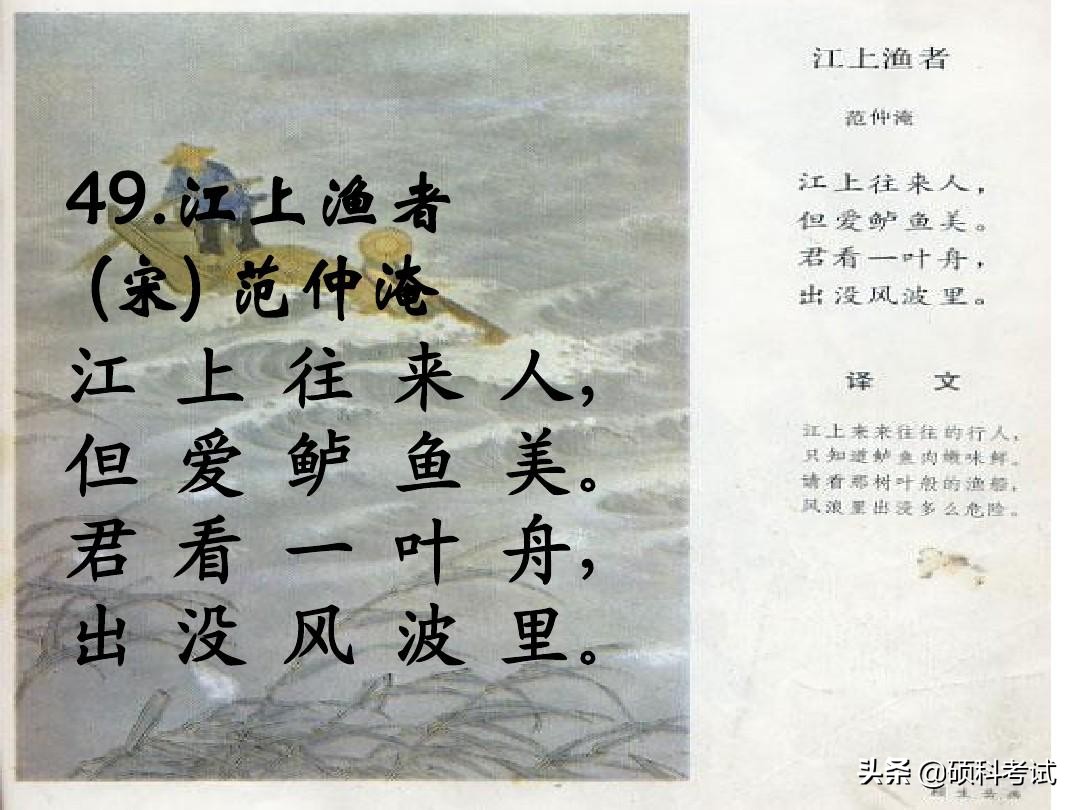 49.江上渔者
(宋)范仲淹
江上往来人，
但爱鲈鱼美。
君看一叶舟，
出没风波里。
江上渔者
范仲淹
江上往来人，
但爱鲈鱼美。
君看一叶舟，
出没风波里。
译 文
江上来来往往的行人，
只知道鲈鱼肉嫩味鲜。
请看那树叶般的渔船，
风浪里出没多么危险。
头条 @硕科考试